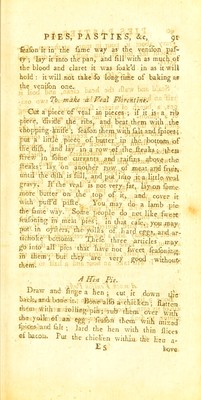 PIES, PASTIES, &c. 91
season it in the same way as the venison pas-
ty; lay it into the pan, and fill with as much of
the blood and claret it was soak'd in as it will
hold: it will not take so long time of baking as
the venison one.
To make a Veal Florentine.
Cut a piece of veal in pieces; if it is a rib
piece, divide the ribs, and beat them with the
chopping-knife; season them with salt and spices;
put a little piece of butter in the bottom of
the dish, and lay in a row of the steaks; then
strew in some currants and raisins above the
steaks; lay on another row of meat and fruit,
until the dish is full, and put into it a little veal
gravy. If the veal is not very fat, lay on some
more butter on the top of it, and cover it
with puff'd paste. You may do a lamb pie
the same way. Some people do not like sweet
seasoning in meat pies; in that case, you may
put in oysters, the yolks of hard eggs, and ar-
tichoke bottoms. These three articles may
go into all pies that have not sweet seasoning
in them; but they are very good without
them.
A Hen Pie.
Draw and singe a hen; cut it down the
back, and bone it. Bone also a chicken; flatten
them with a rolling-pin; rub them over with
the yolk of an egg; season them with mixed
spices and salt; lard the hen with thin slices
of bacon. Put the chicken within the hen a-
E 5 bove